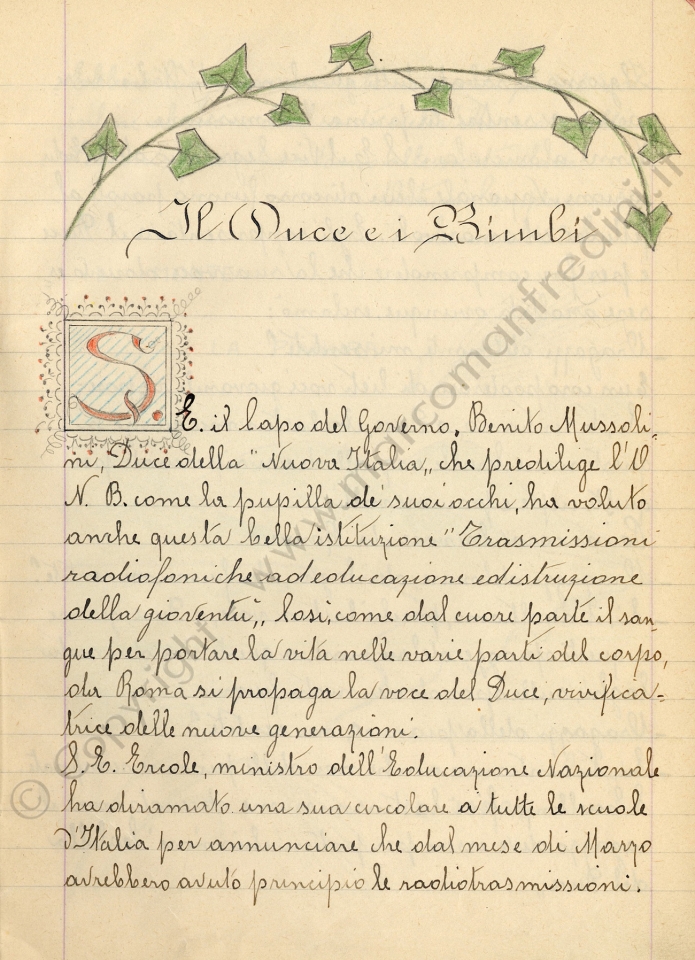 Il Duce e i Bimbi
S. E. il Capo del Governo, Benito Mussoli-
ni, Duce della "Nuova Italia„ che predilige l'O
N. B. come la pupilla de' suoi occhi, ha voluto
anche questa bella istituzione "Trasmissioni
radiofoniche ad educazione ed istruzione
della gioventù„. Così, come dal cuore parte il san-
gue per portare la vita nelle varie parti del corpo,
da Roma si propaga la voce del Duce, vivifica-
trice delle nuove generazioni.
S. E. Ercole, ministro dell'Educazione Nazionale
ha diramato una sua circolare a tutte le scuole
d'Italia per annunciare che dal mese di Marzo
avrebbero avuto principio le radiotrasmissioni.
© Copyright www.marcomanfredini.it